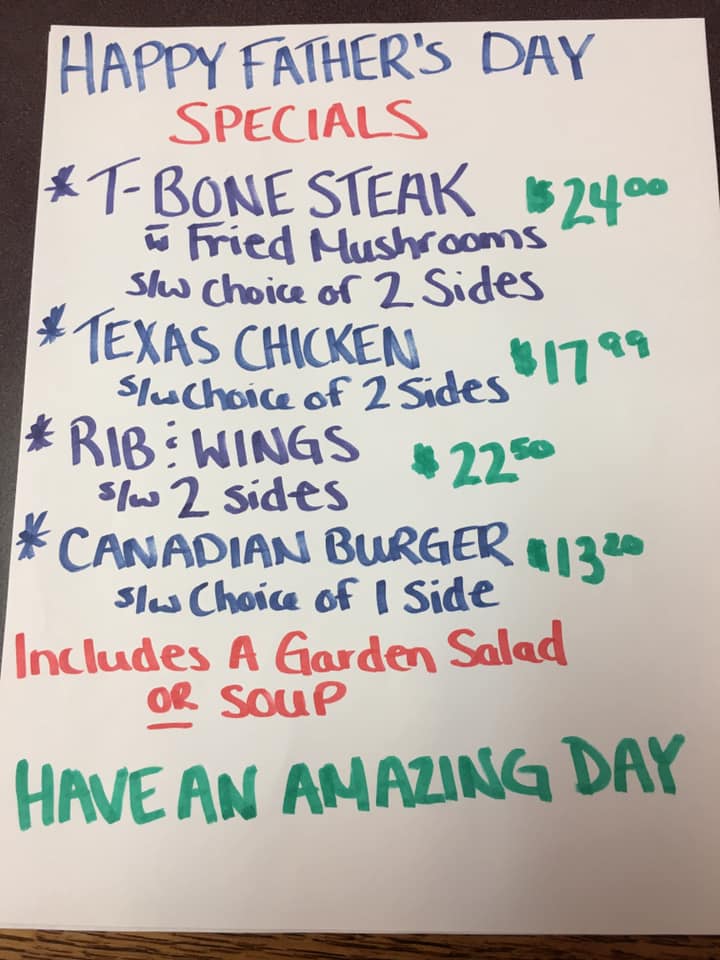 HAPPY FATHER'S DAY
SPECIALS
* T-BONE STEAK $24⁰⁰
w̄ Fried Mushrooms
s/w choice of 2 Sides
* TEXAS CHICKEN $17⁹⁹
s/w Choice of 2 Sides
* RIB & WINGS $22⁵⁰
s/w 2 sides
* CANADIAN BURGER $13²⁰
s/w Choice of 1 Side
Includes A Garden Salad
OR SOUP
HAVE AN AMAZING DAY